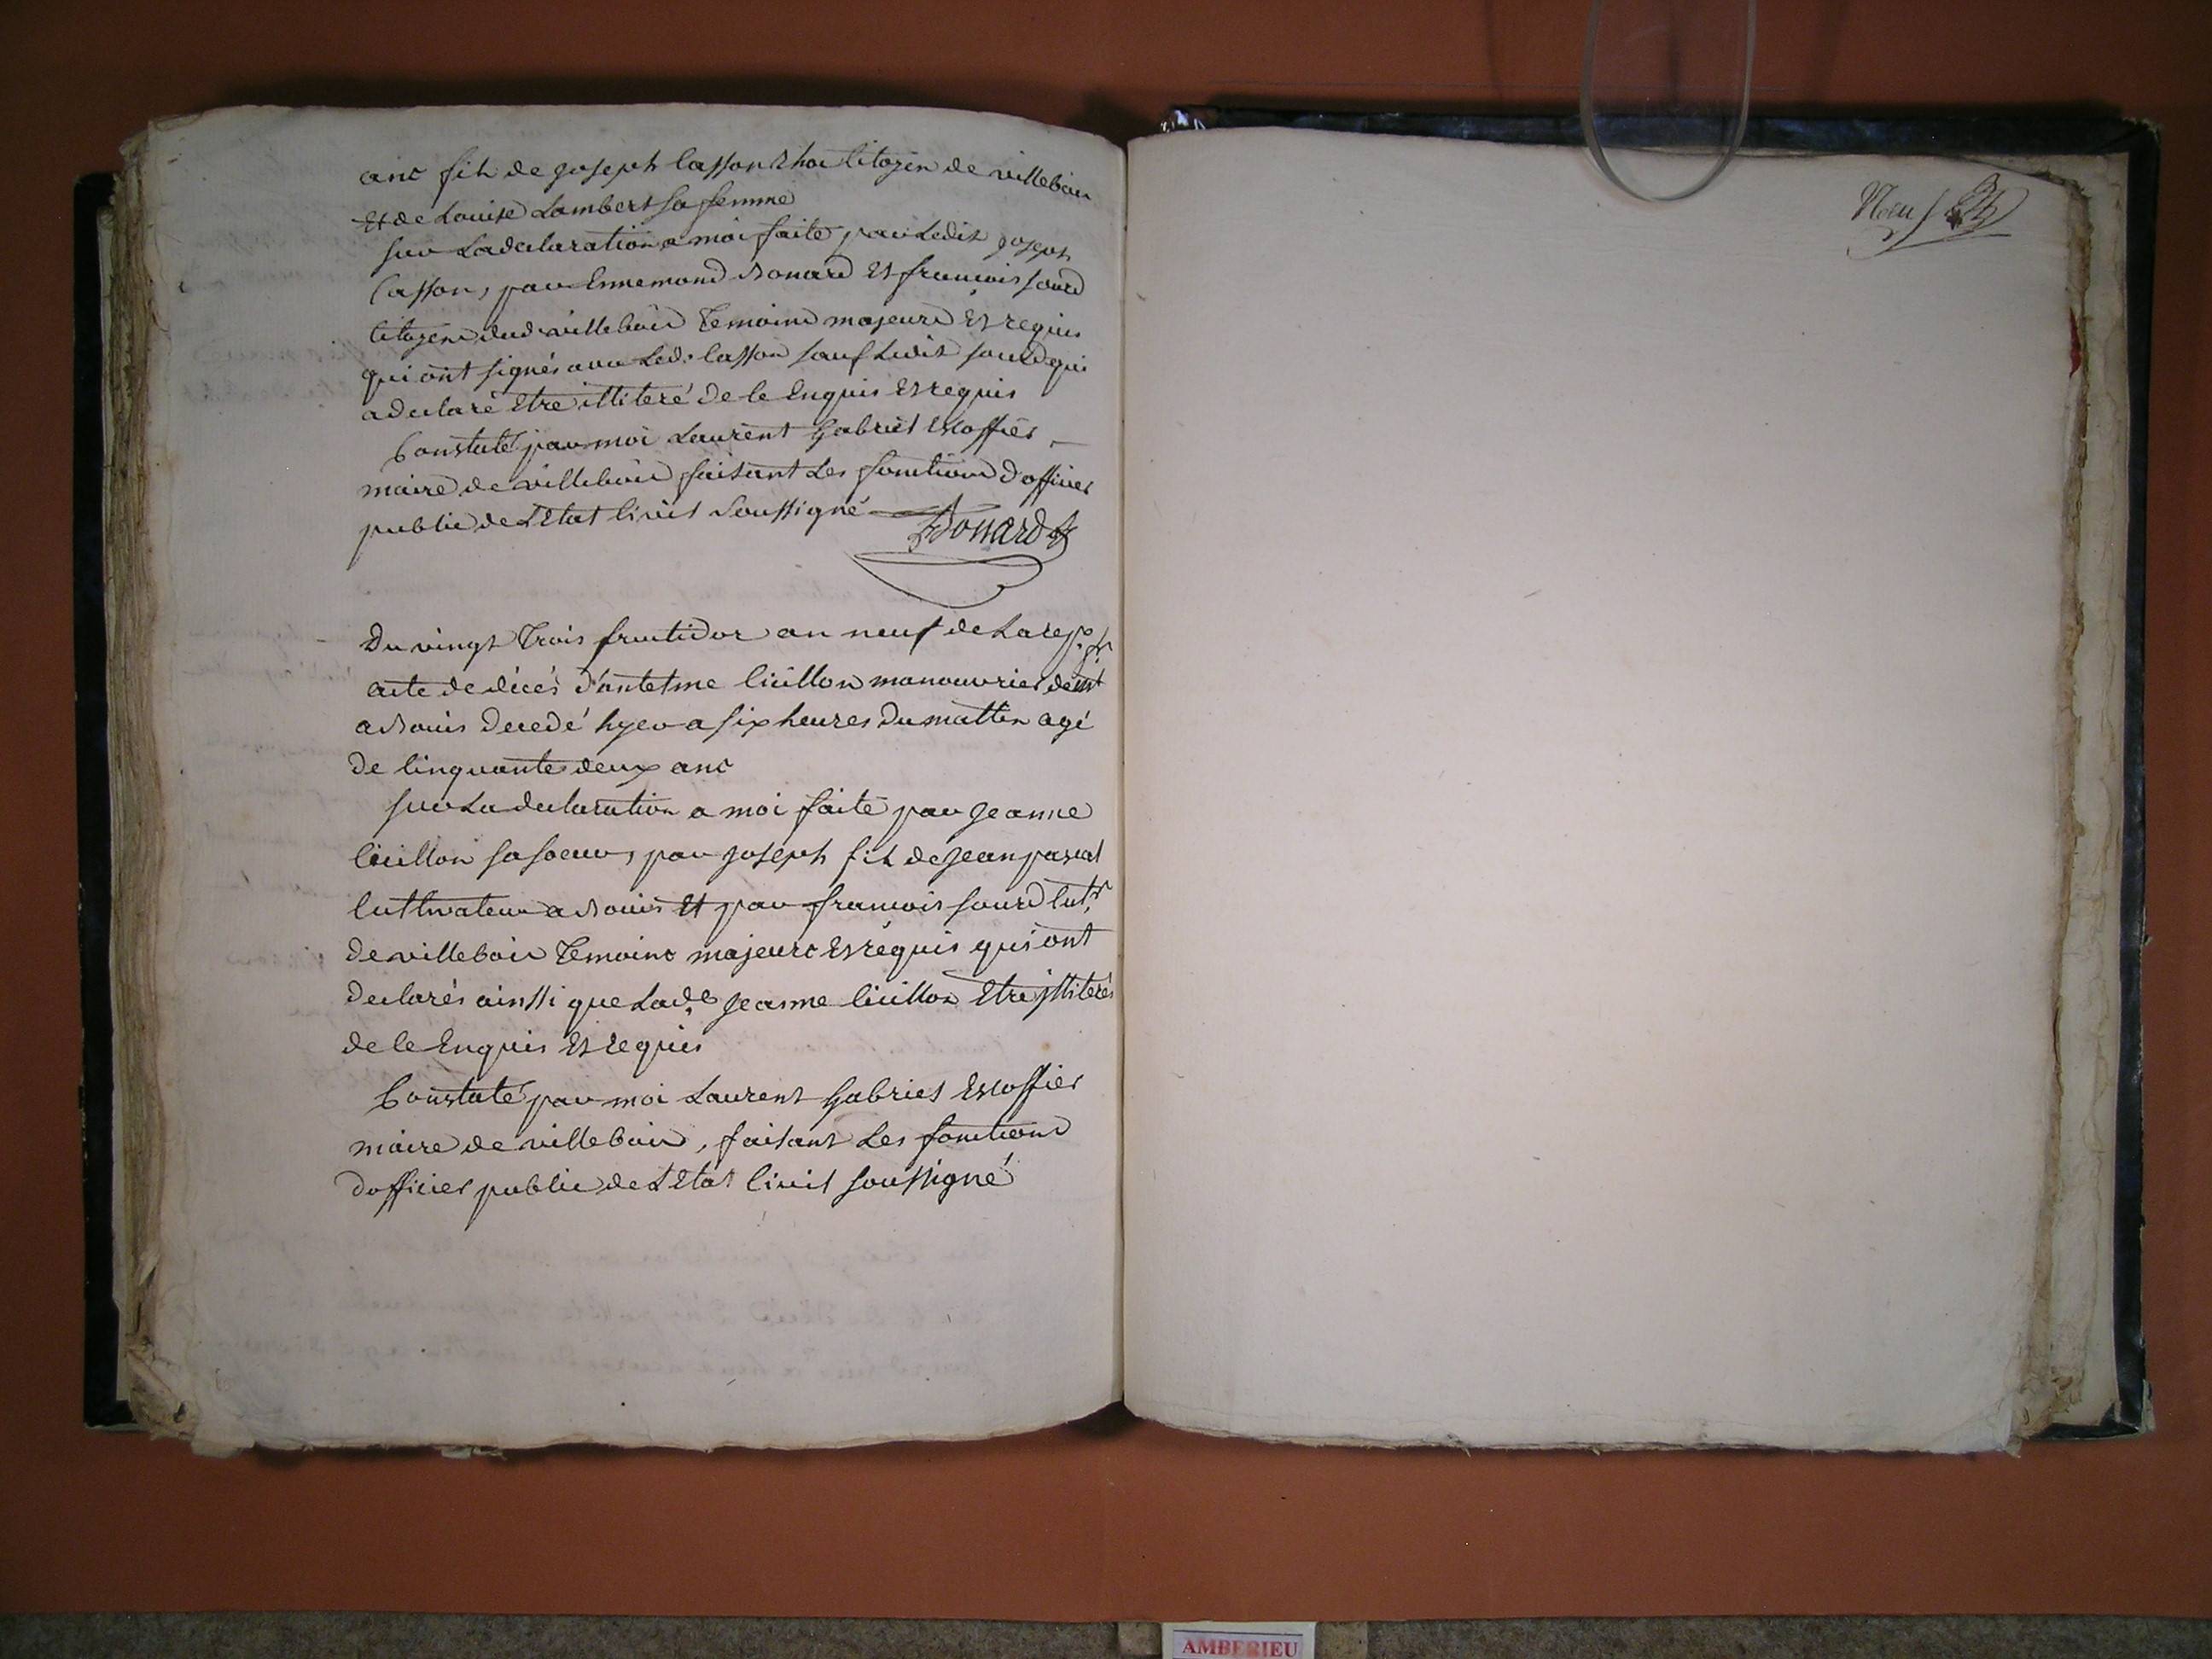 ans fils de joseph Casson citoyen de villebois
Et de Louise Lambert sa femme
sur La declaration a moi faite par Ledit joseph
Casson, par Ennemond Bonard Et francois sourd
Citoyens dud. villebois Temoins majeurs Et requis
qui ont signés avec Led. Casson sauf Ledit sourd qui
a declaré Etre illiteré de ce Enquis Et requis
Constaté par moi Laurent Gabriel Escoffier
maire de villebois faisant Les fonctions d'officier
public de L'Etat Civil Soussigné
Bonard
Du vingt Trois fructidor an neuf de La rep. fr.
acte de décés d'antelme Cuillon manouvrier demt
a Bouis Decedé hyer a six heures Du mattin agé
De Cinquante deux ans
sur La declaration a moi faite par Jeanne
Cuillon sa soeur, par joseph fils de Jean pascal
Cultivateur a Bouis Et par francois sourd Cutr.
De villebois Temoins majeurs Et requis qui ont
Declarés ainssi que Lade. Jeanne Cuillon Etre illiterés
de ce Enquis Et requis
Constaté par moi Laurent Gabriel Escoffier
maire de villebois, faisant Les fonctions
d'officier public de L'Etat Civil soussigné
Neuf
AMBERIEU